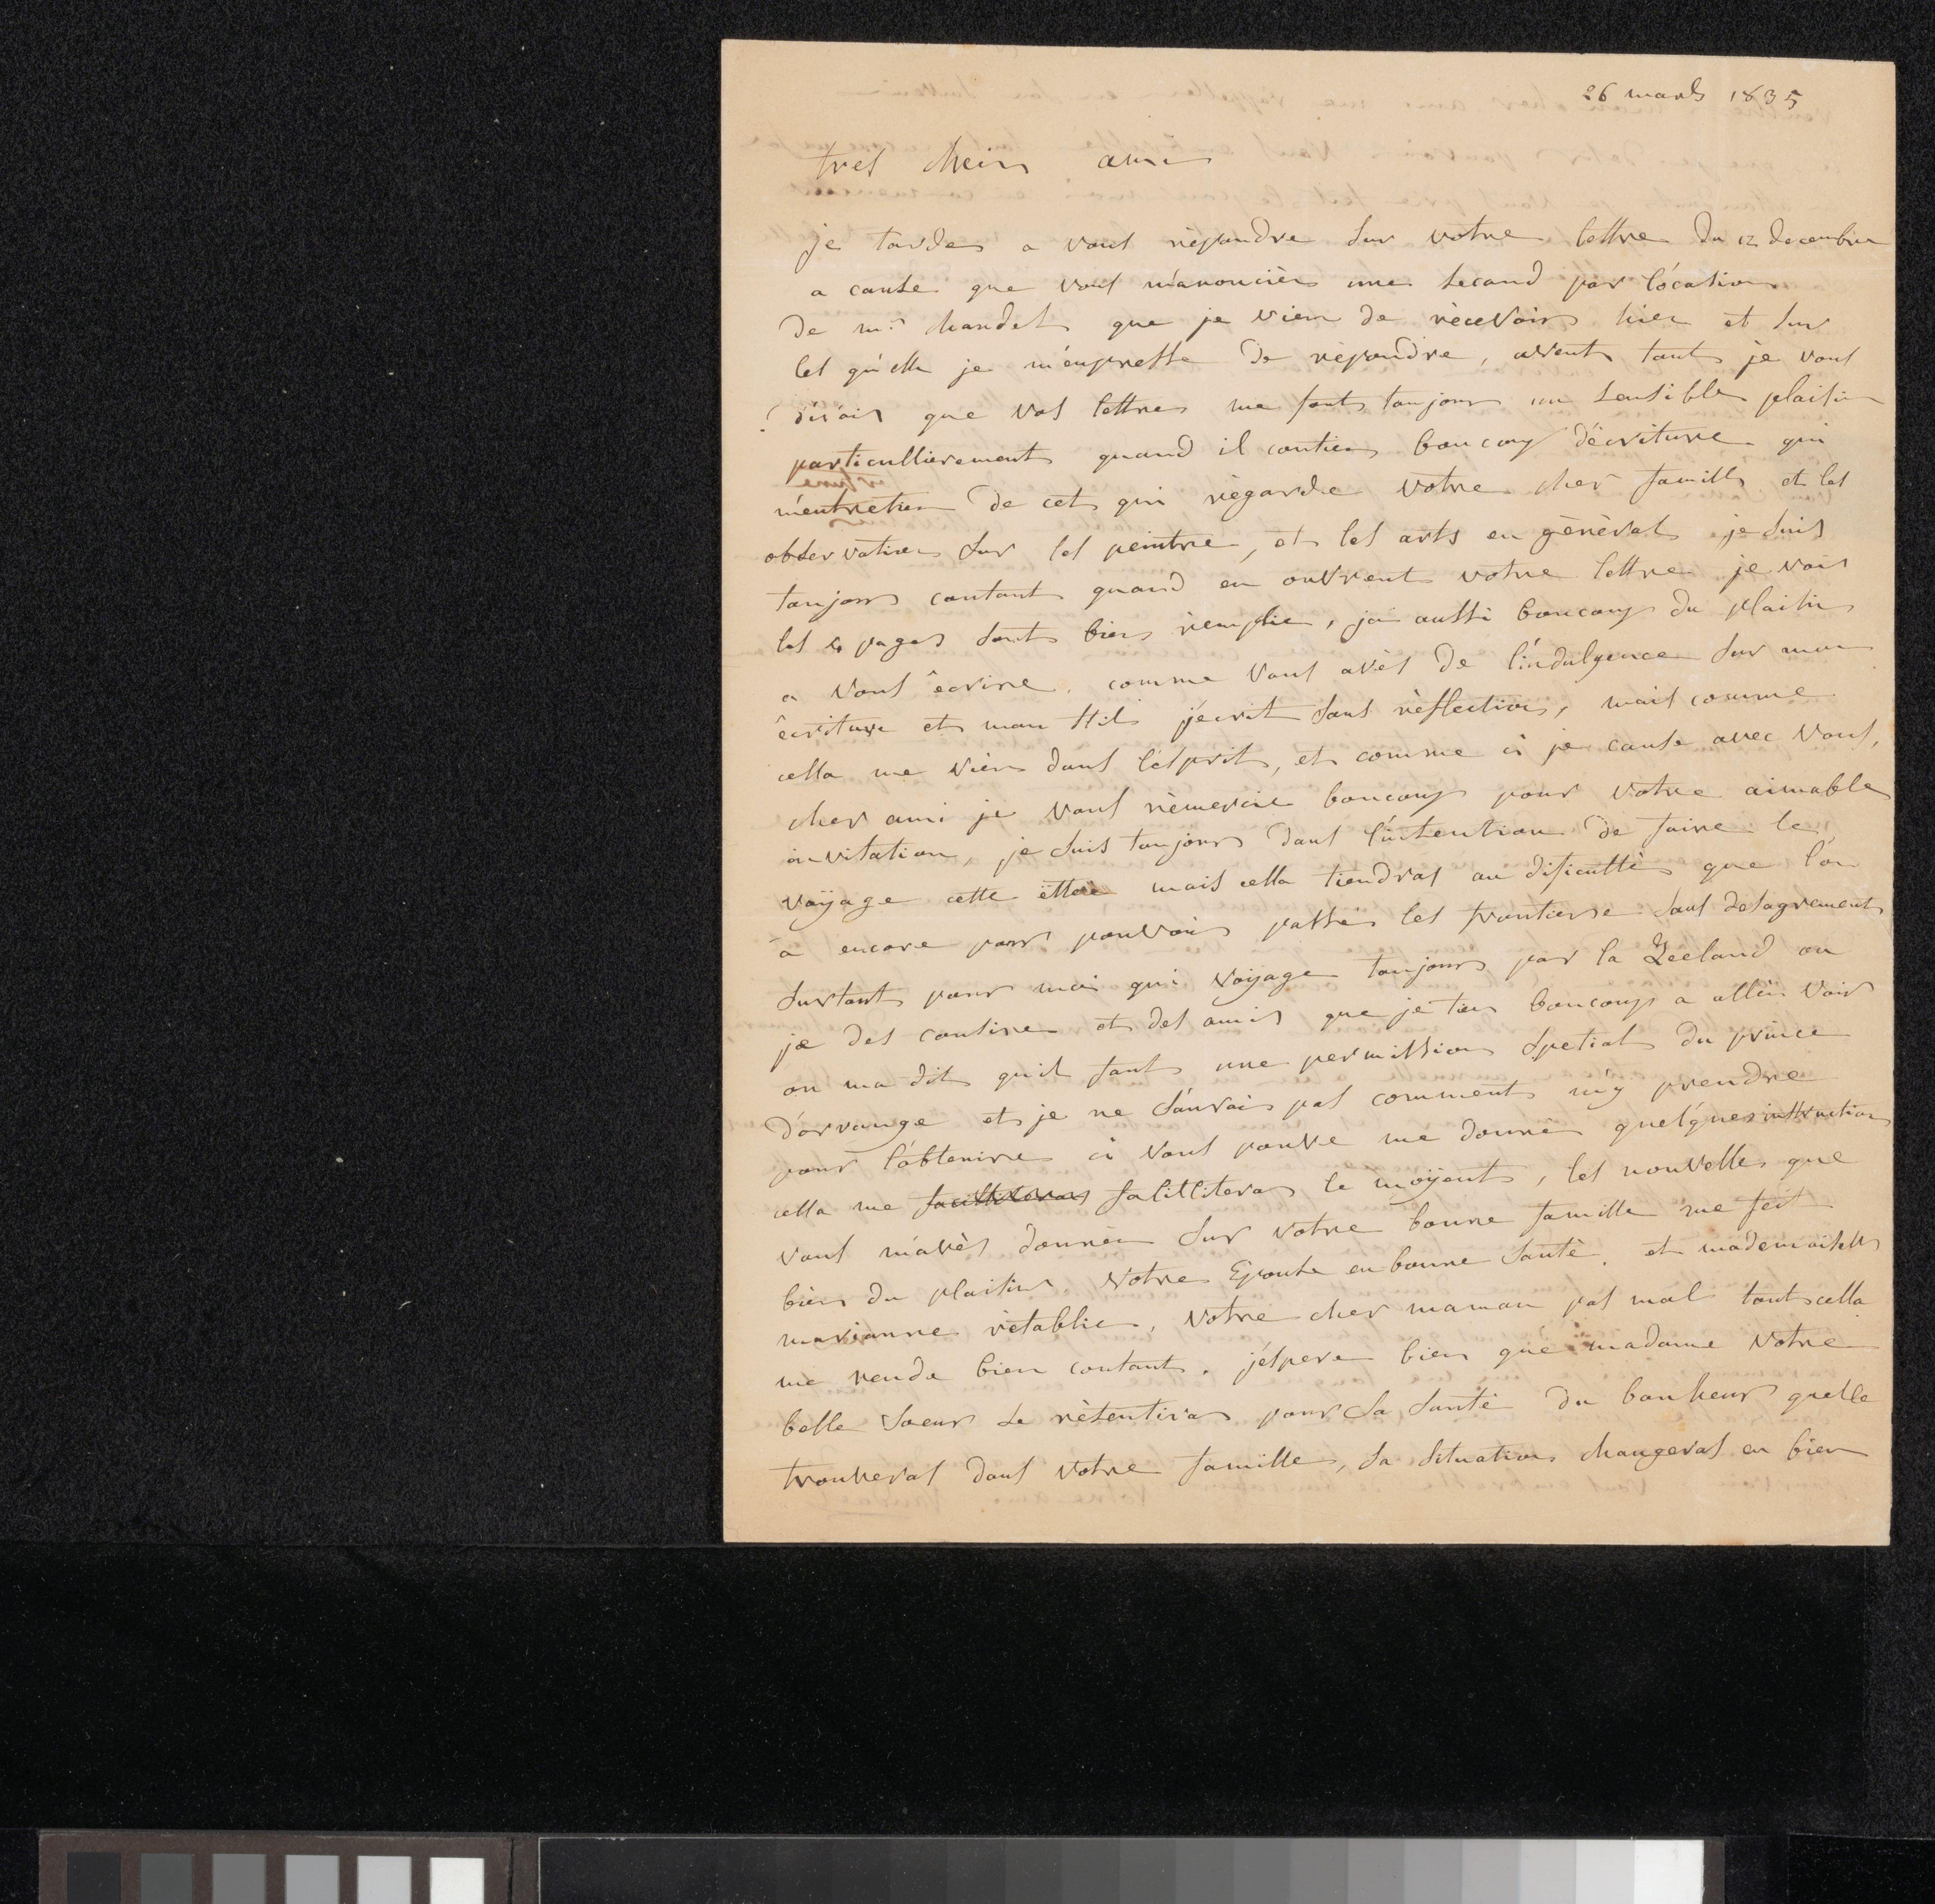 26 mars 1835
tres cheir ami
je tarde a vous rèpondre sur votre lettre du 12 decembre
a cause que vous m'anoncièr une second par l'ócation
de mr. chandel que je vien de rècevoir hier et sur
les qu'elle je m'enpresse de rèpondre, avent tout je vous
dirais que vos lettres me font toujour un sensible plaisir
particullierement quand il contien boucoup d'écriture qui
m'entretien de cet qui règarde votre cher famille et les
observation sur les peintre, et les arts en gènèral je suis
toujours contant quand en ouvrent votre lettre je vois
les 4 pages sont bien remplie, jai aussi boucoup du plaisir
a vous ècrire, comme vous avès de l'indulgence sur mon
ècriture et mon stil j'ecrit sans rèflection, mais comme
cella me vièn dans l'esprit, et comme ci je cause avec vous,
cher ami je vous rèmercie boucoup pour votre aimable
invitation, je suis toujours dans l'intention de faire le
voÿage cette ètter mais cella tiendras au dificultè que l'on
à encore pour pouvoir passè les frontierse sans desagrement
surtout pour moi qui voÿage toujours par la Zeeland ou
jæ des cousine et des amis que je tien boucoup a allèr voir
on ma dit qu'il faut une permission spetial du prince
d'orrange et je ne s'aurais pas comment m'y prendre
pour l'obtenire ci vous pouve me donnè quelques instruction
cella me salitlitera le moÿent, les nouvelles que
vous m'avès donnèr sur votre bonne famille me fait
bien du plaisir votre Epouse en bonne santè, et mademoiselle
marianne rètablie, votre cher maman pas mal tout cella
me rende bien contant, j'espere bien que madame votre
belle soeur se rètentira pour sa santè du bonheur quelle
trouveras dans votre famille, sa situation changeras en bien